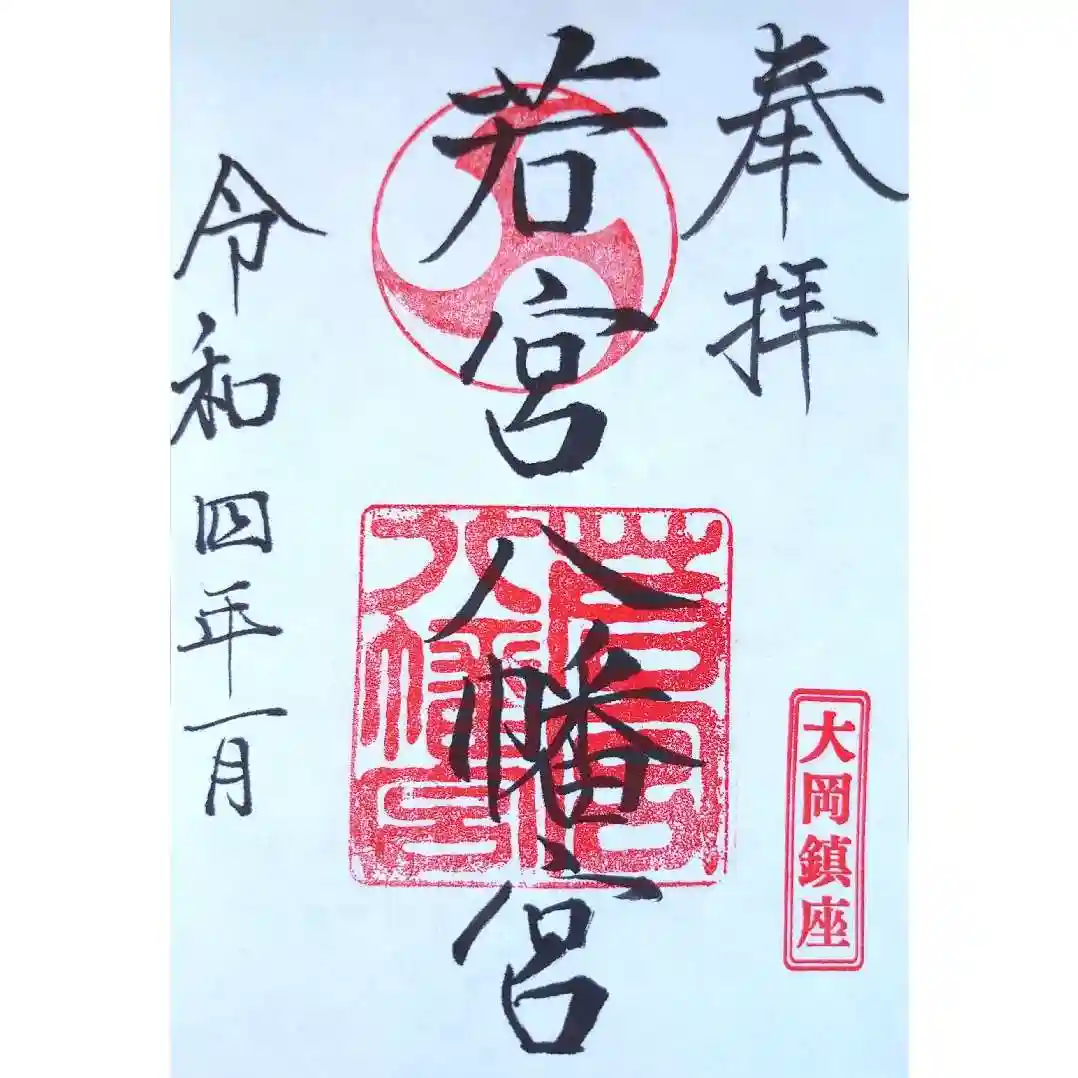 奉拝
大岡鎮座
若宮八幡宮
若宮八幡宮
令和四年一月